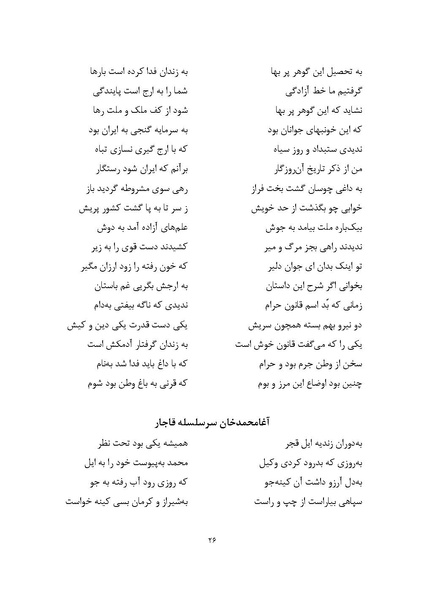 به تحصیل این گوهر پر بها به زندان فدا کرده است بارها
گرفتیم ما خط آزادگی شما را به ارج است پایندگی
نشاید که این گوهر پر بها شود از کف ملک و ملت رها
که این خونبهای جوانان بود به سرمایه گنجی به ایران بود
ندیدی ستبداد و روز سیاه که با ارج گیری نسازی تباه
من از ذکر تاریخ آن‌روزگار برآنم که ایران شود رستگار
به داغی چوسان گشت بخت فراز رهی سوی مشروطه گردید باز
خوابی چو بگذشت از حد خویش ز سر تا به پا گشت کشور پریش
بیک‌باره ملت بیامد به جوش علم‌های آزاده آمد به دوش
ندیدند راهی بجز مرگ و میر کشیدند دست قوی را به زیر
تو اینک بدان ای جوان دلیر که خون رفته را زود ارزان مگیر
بخوانی اگر شرح این داستان به ارجش بگریی غم باستان
زمانی که بُد اسم قانون حرام ندیدی که ناگه بیفتی به‌دام
دو نیرو بهم بسته همچون سریش یکی دست قدرت یکی دین و کیش
یکی را که می‌گفت قانون خوش است به زندان گرفتار آدمکش است
سخن از وطن جرم بود و حرام که با داغ باید فدا شد به‌نام
چنین بود اوضاع این مرز و بوم که قرنی به باغ وطن بود شوم
آغامحمدخان سرسلسله قاجار
به‌دوران زندیه ایل قجر همیشه یکی بود تحت نظر
به‌روزی که بدرود کردی وکیل محمد به‌پیوست خود را به ایل
به‌دل آرزو داشت آن کینه‌جو که روزی رود آب رفته به جو
سپاهی بیاراست از چپ و راست به‌شیراز و کرمان بسی کینه خواست
۲۶